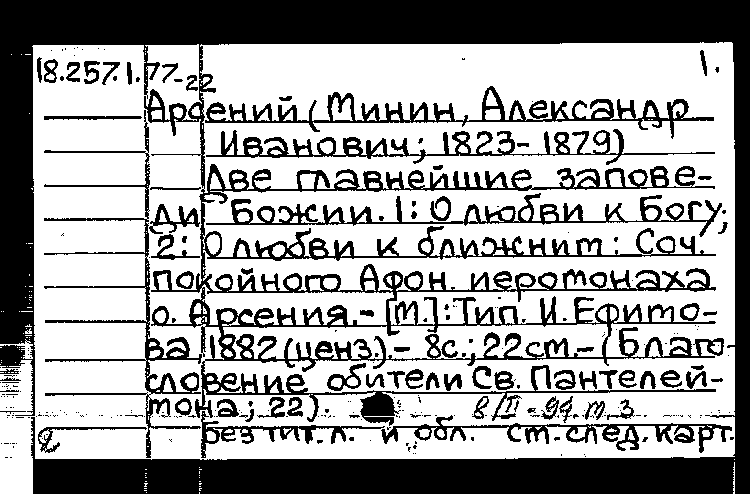 18.257.1.77-22
1.
Арсений (Минин, Александр
Иванович; 1823-1879)
Две главнейшие запове-
ди Божии. 1: О любви к Богу;
2: О любви к ближним: Соч.
покойного Афон. иеромонаха
о. Арсения.- [М.]: Тип. И. Ефимо-
ва, 1882 (ценз.).- 8с.; 22см.- (Благо-
словение обители Св. Пантелей-
мона; 22).
8/II-94. т. 3
Без тит. л. и обл. См. след. карт.
2